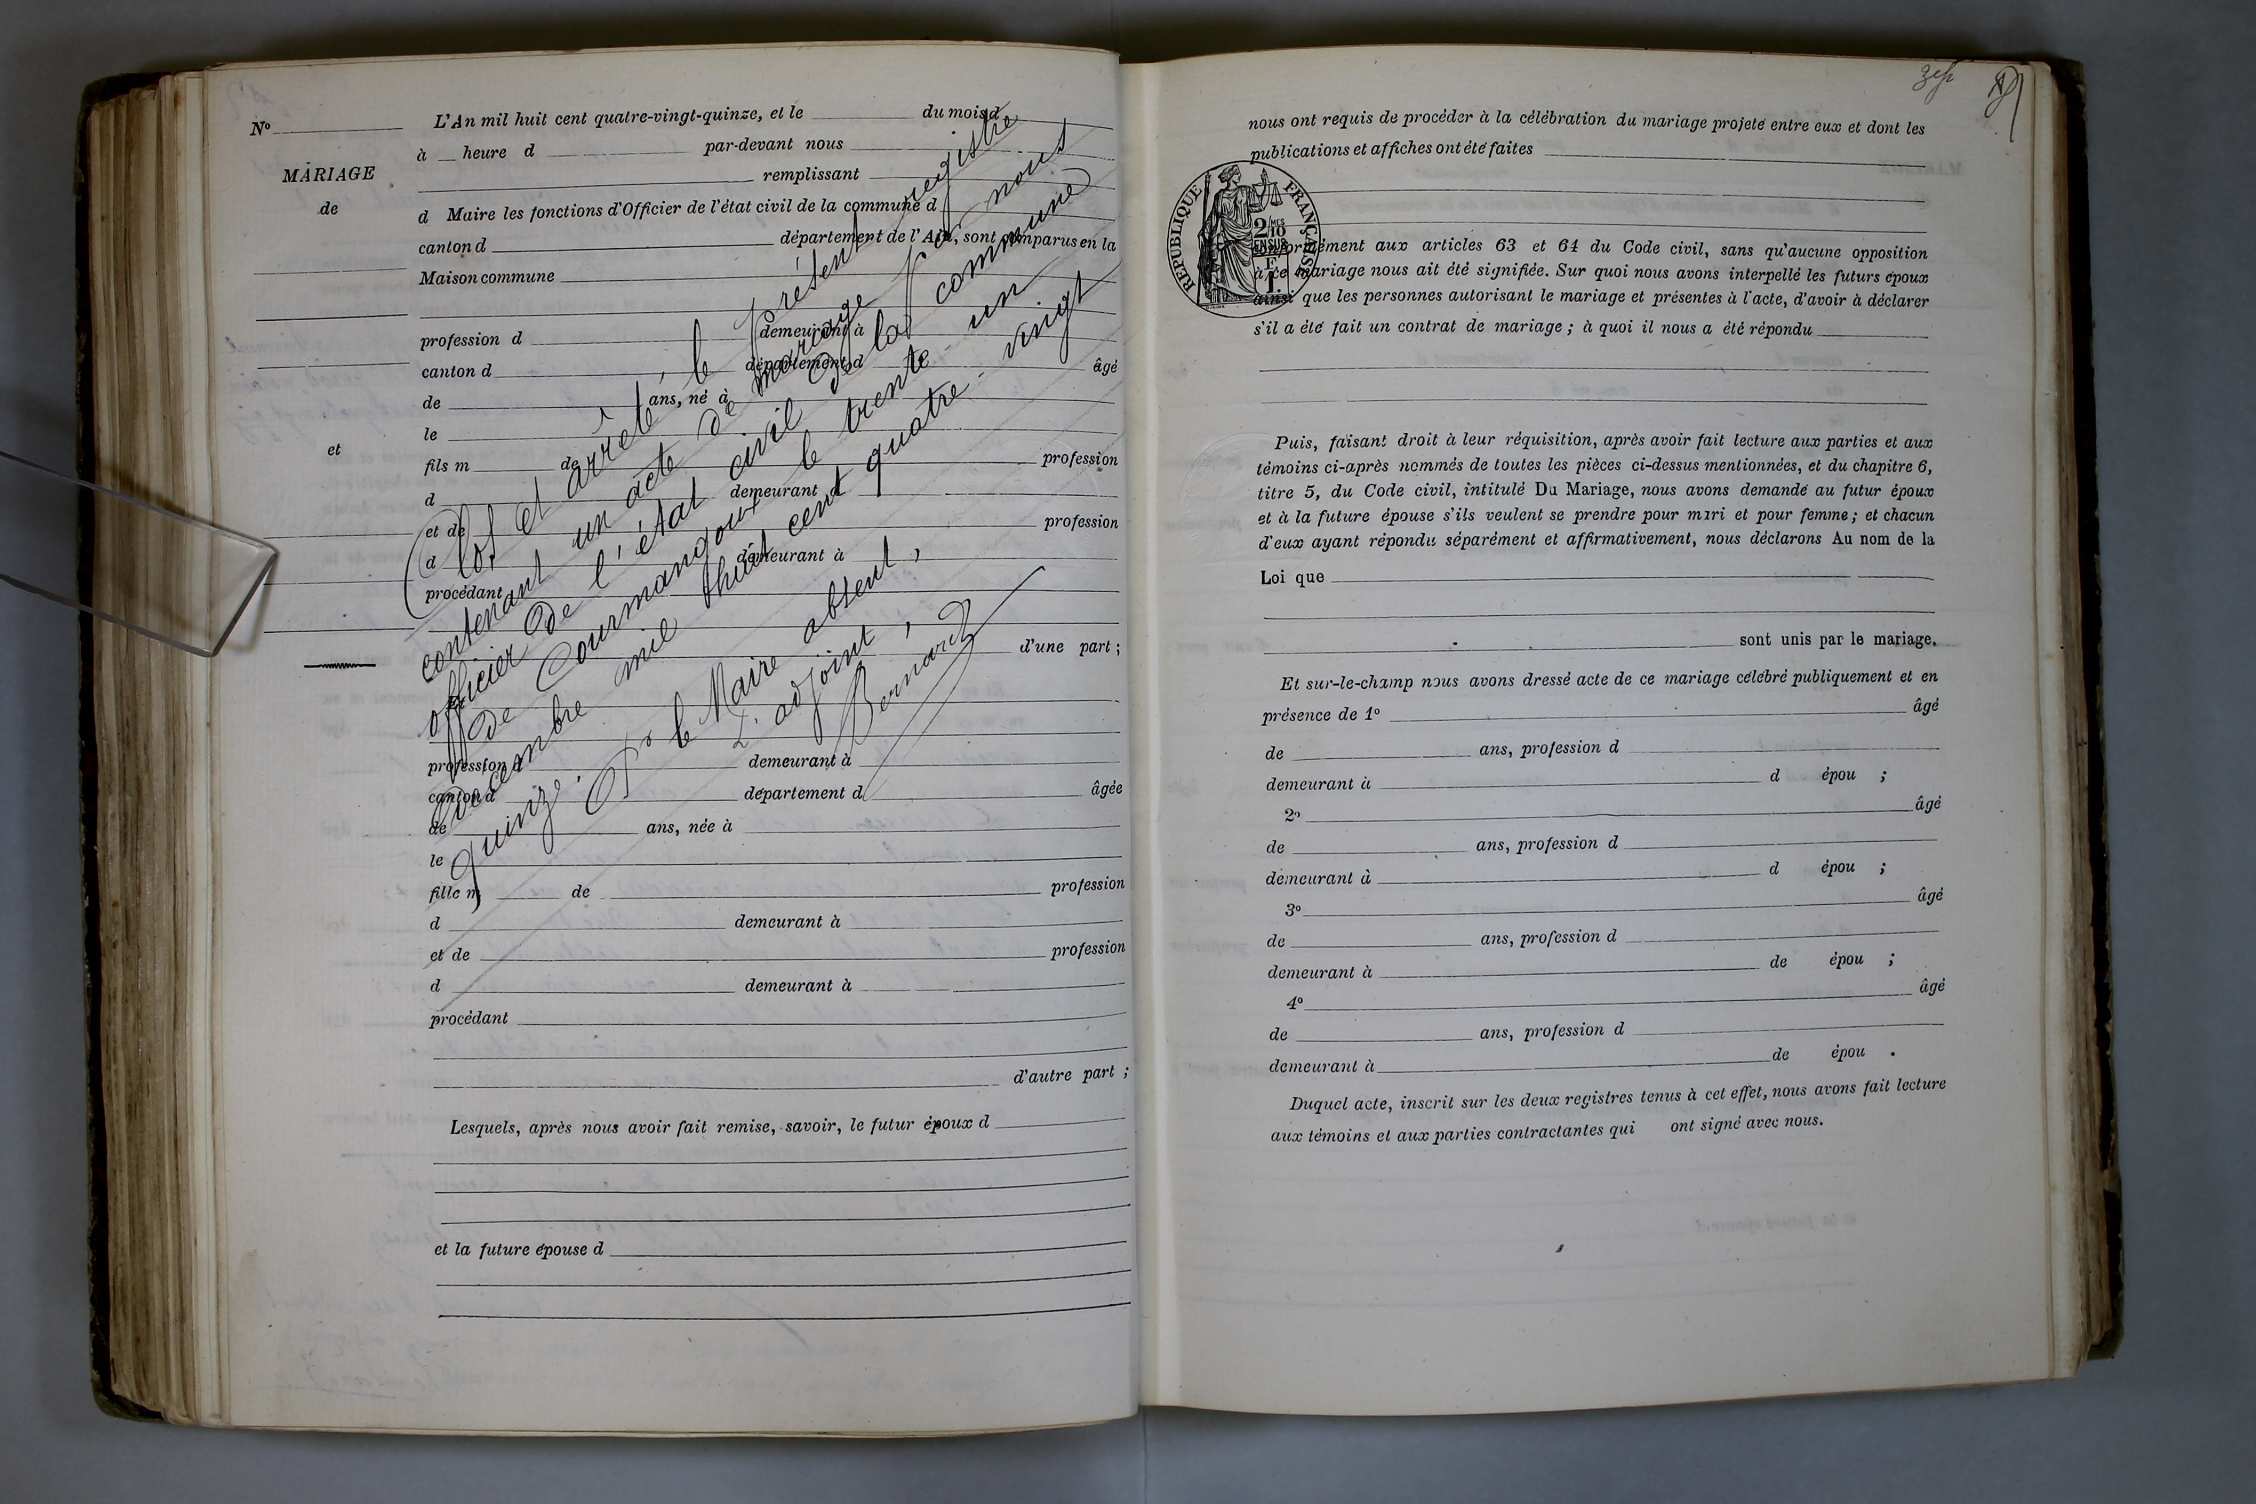 N°
MARIAGE
de
et
L'An mil huit cent quatre-vingt-quinze, et le du mois d
à heure d par-devant nous
remplissant
d Maire les fonctions d'Officier de l'état civil de la commune d
canton d département de l'Ain, sont comparus en la
Maison commune
profession d demeurant à
canton d département d âgé
de ans, né à
le
fils m de profession
d demeurant à
et de profession
d demeurant à
procédant
d'une part ;
profession d demeurant à
canton d département d âgée
de ans, née à
le
fille m de profession
d demeurant à
et de profession
d demeurant à
procédant
d'autre part ;
Lesquels, après nous avoir fait remise, savoir, le futur époux d
et la future épouse d
Clos et arrêté, le présent registre
contenant un acte de mariage par nous
officier de l'état civil de la commune
de Courmangoux le trente-un
décembre mil huit cent quatre-vingt
quinze.
Pr le Maire absent,
L'adjoint,
Bernard
nous ont requis de procéder à la célébration du mariage projeté entre eux et dont les
publications et affiches ont été faites
RÉPUBLIQUE FRANÇAISE
2/10 MES
EN SUS
E
1
conformément aux articles 63 et 64 du Code civil, sans qu'aucune opposition
à ce mariage nous ait été signifiée. Sur quoi nous avons interpellé les futurs époux
ainsi que les personnes autorisant le mariage et présentes à l'acte, d'avoir à déclarer
s'il a été fait un contrat de mariage ; à quoi il nous a été répondu
Puis, faisant droit à leur réquisition, après avoir fait lecture aux parties et aux
témoins ci-après nommés de toutes les pièces ci-dessus mentionnées, et du chapitre 6,
titre 5, du Code civil, intitulé Du Mariage, nous avons demandé au futur époux
et à la future épouse s'ils veulent se prendre pour mari et pour femme ; et chacun
d'eux ayant répondu séparément et affirmativement, nous déclarons Au nom de la
Loi que
sont unis par le mariage.
Et sur-le-champ nous avons dressé acte de ce mariage célébré publiquement et en
présence de 1° âgé
de ans, profession d
demeurant à d épou ;
2° âgé
de ans, profession d
demeurant à d épou ;
3° âgé
de ans, profession d
demeurant à de épou ;
4° âgé
de ans, profession d
demeurant à de épou .
Duquel acte, inscrit sur les deux registres tenus à cet effet, nous avons fait lecture
aux témoins et aux parties contractantes qui ont signé avec nous.